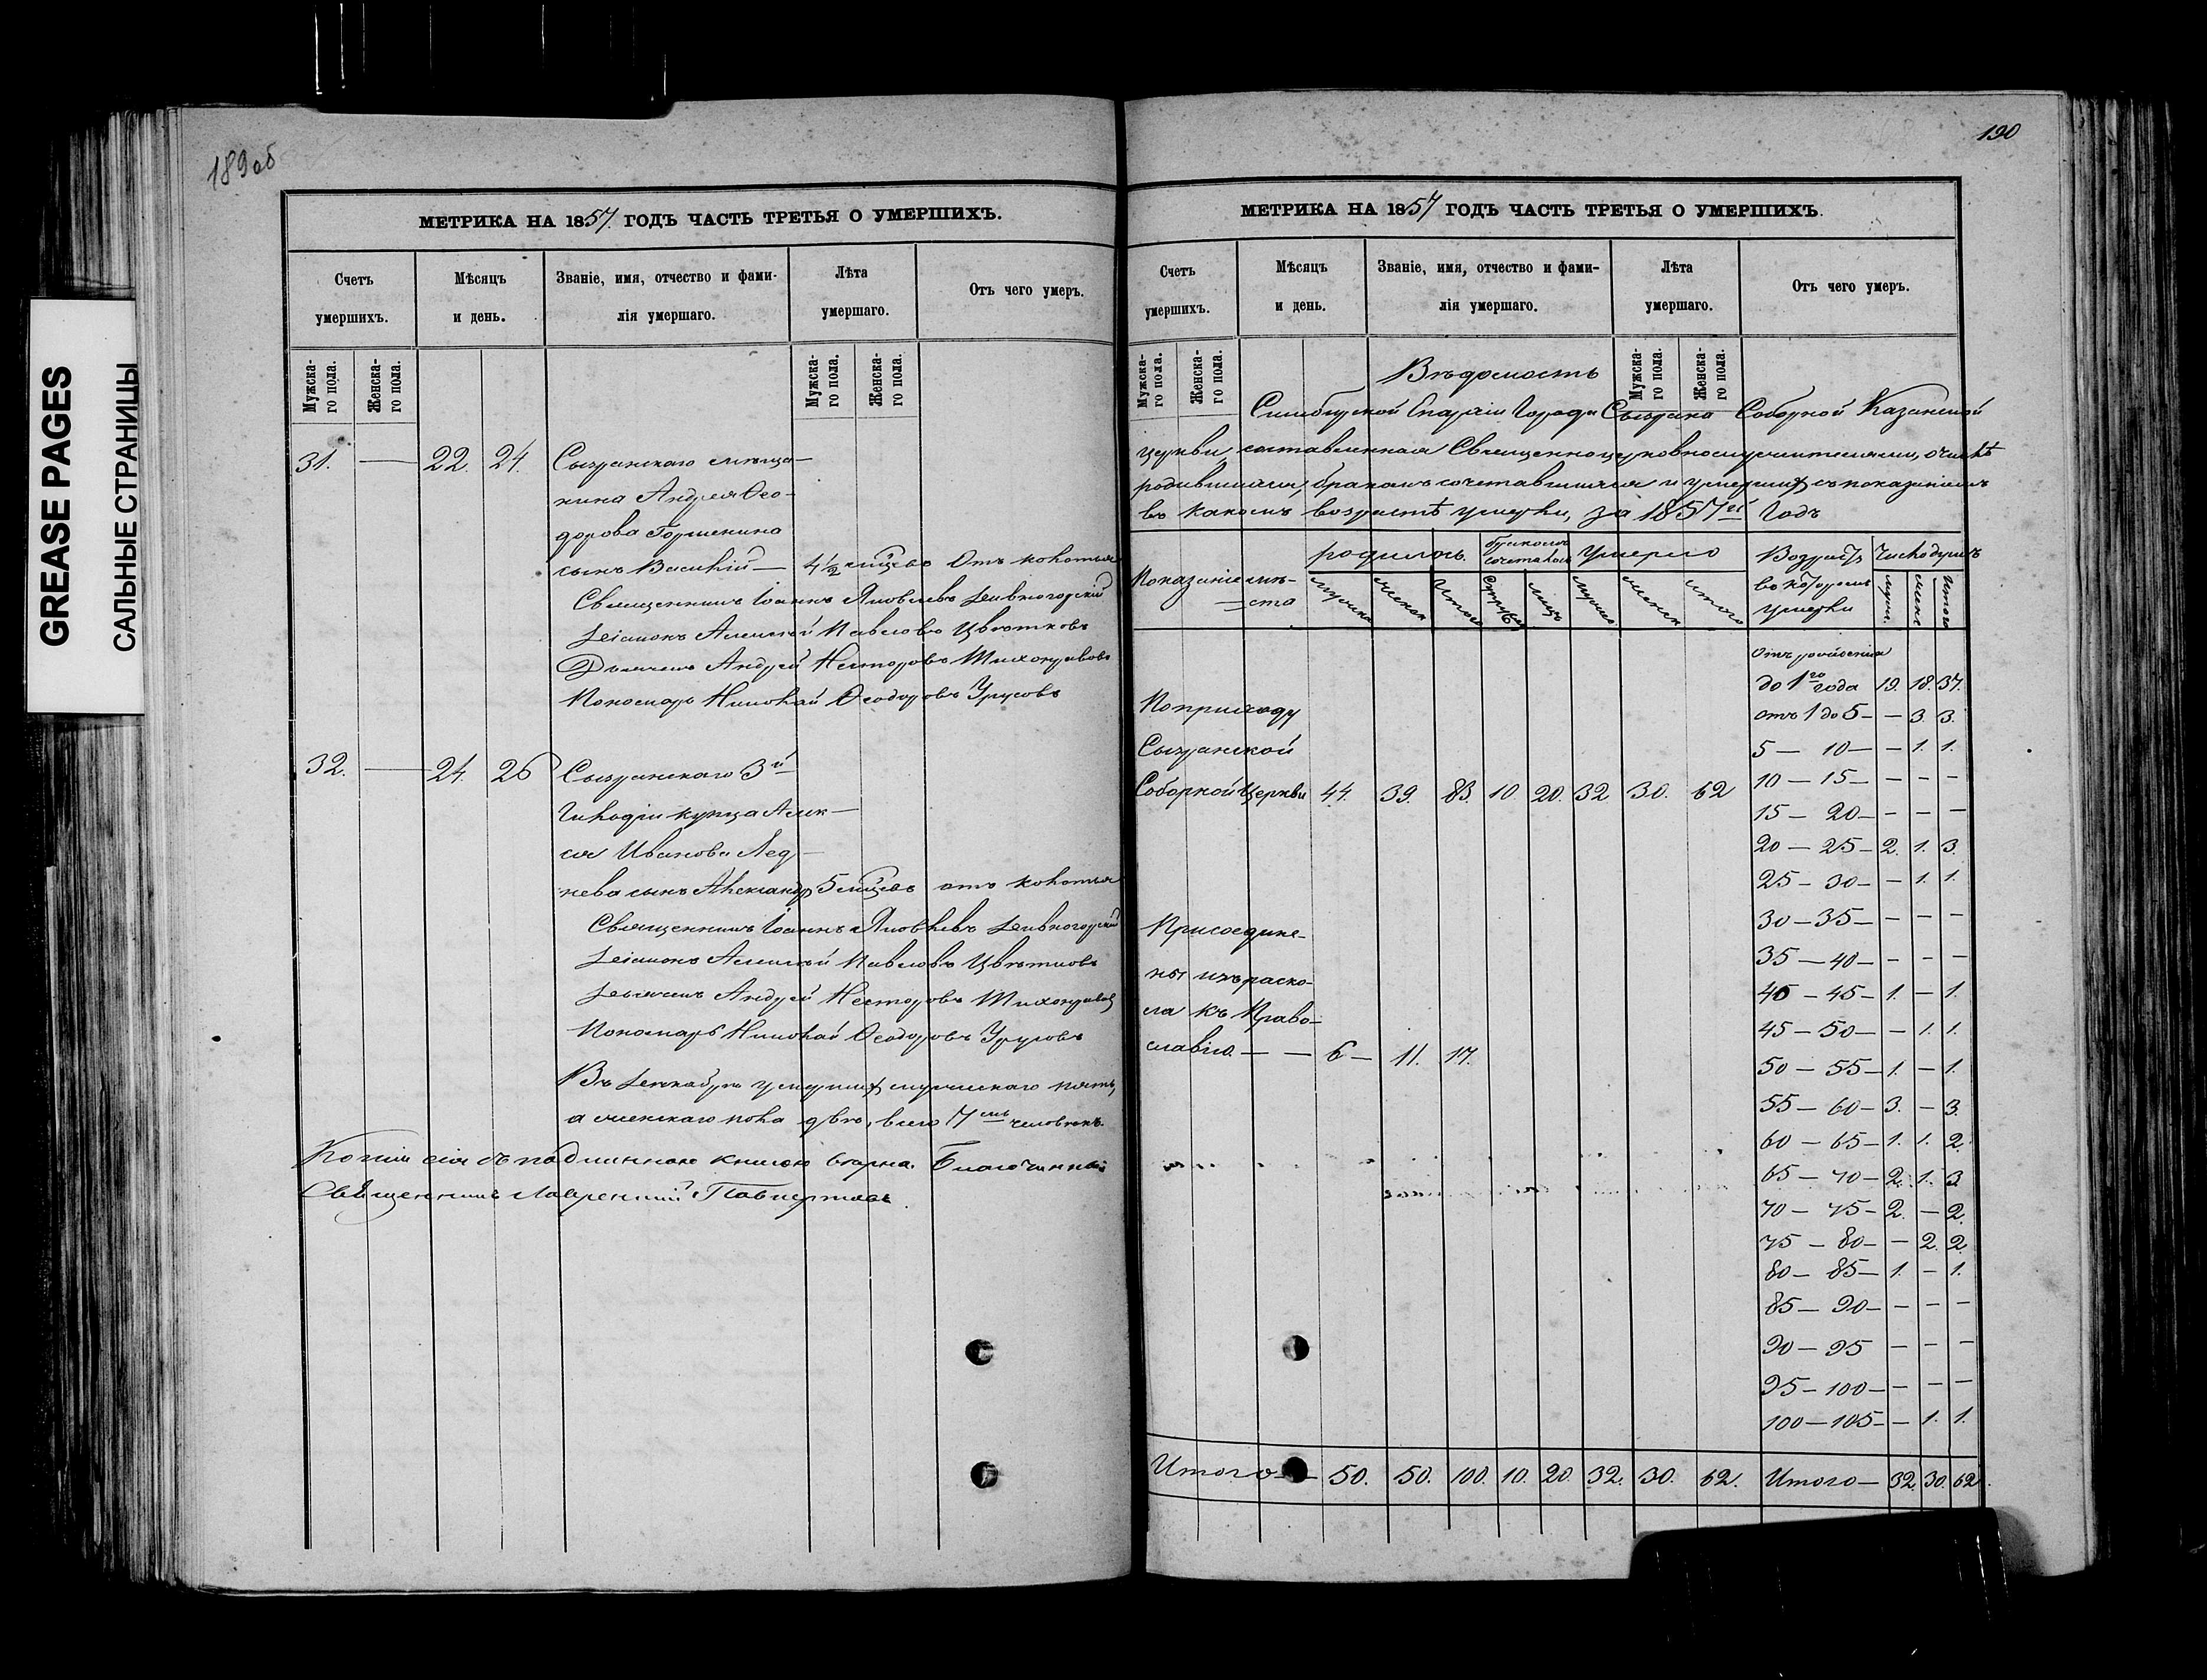 GREASE PAGES
САЛЬНЫЕ СТРАНИЦЫ
189об
МЕТРИКА НА 1857. ГОДЪ ЧАСТЬ ТРЕТЬЯ О УМЕРШИХЪ.
Счетъ умершихъ.
Мѣсяцъ и день.
Званіе, имя, отчество и фами-
лія умершаго.
Лѣта умершаго.
Отъ чего умеръ.
Мужска-
го пола.
Женска-
го пола.
Мужска-
го пола.
Женска-
го пола.
31. — 22. 24. Сызранскаго мѣща-
нина Андрея Ѳео-
дорова
сынъ Василій — 4½ мѣсяцевъ Отъ колотья
Священникъ Іоаннъ Яковлевъ Дивногорскій
Діаконъ Алексѣй Павловъ Цвѣтковъ
Дьячекъ Андрей Несторовъ Тихонравовъ
Пономарь Николай Ѳеодоровъ Урусовъ
32. — 24. 26 Сызранскаго 3й
Гильдіи купца Алек-
сѣя Иванова Лед-
нева сынъ Александръ 5 мѣсяцевъ отъ колотья
Священникъ Іоаннъ Яковлевъ Дивногорскій
Діаконъ Алексѣй Павловъ Цвѣтковъ
Дьячекъ Андрей Несторовъ Тихонравовъ
Пономарь Николай Ѳеодоровъ Урусовъ
Въ Декабрѣ умершихъ мужескаго пять,
а женскаго пола двѣ, всего 7мь человѣкъ.
Копия сія съ подлинною книгою вѣрна. Благочинный
Священникъ Лаврентий
190
МЕТРИКА НА 1857 ГОДЪ ЧАСТЬ ТРЕТЬЯ О УМЕРШИХЪ.
Счетъ умершихъ.
Мѣсяцъ и день.
Званіе, имя, отчество и фами-
лія умершаго.
Лѣта умершаго.
Отъ чего умеръ.
Мужска-
го пола.
Женска-
го пола.
Мужска-
го пола.
Женска-
го пола.
Вѣдомость
Симбирской Епархіи Города Сызрана Соборной Казанской
церкви, составленная Священноцерковнослужителями, о числѣ
родившихся, бракомъ сочетавшихся и умершихъ съ показаніемъ
въ какомъ возрастѣ умерли, за 1857й Годъ
Показаніе мѣ-
ста
родилось.
мужска женск Итого
бракомъ
сочеталось
Супруж лицъ
Умерло
мужск женск итого
Возрастъ
въ которомъ
умерли
Число душъ
муж. женс Итого
По приходу
Сызранской
Соборной Церкви 44. 39. 83. 10 20. 32 30. 62
Присоедине-
ны изъ раско-
ла къ Право-
славію — — 6 — 11. 17.
Отъ рожденія
до 1го года 19. 18. 37.
отъ 1 до 5 — — 3. 3.
5 — 10 — — 1. 1.
10 — 15 — — — —
15 — 20 — — — —
20 — 25 — 2. 1. 3.
25 — 30 — — 1. 1.
30 — 35 — — — —
35 — 40 — — — —
40 — 45 — 1. — 1.
45 — 50 — — 1. 1.
50 — 55 — 1. — 1.
55 — 60 — 3. — 3.
60 — 65 — 1. 1. 2.
65 — 70 — 2. 1. 3.
70 — 75 — 2. — 2.
75 — 80 — — 2. 2.
80 — 85 — 1. — 1.
85 — 90 — — — —
90 — 95 — — —
95 — 100 — — — —
100 — 105 — — 1. 1.
Итого — 50. 50. 100. 10. 20. 32. 30. 62. Итого — 32. 30. 62.